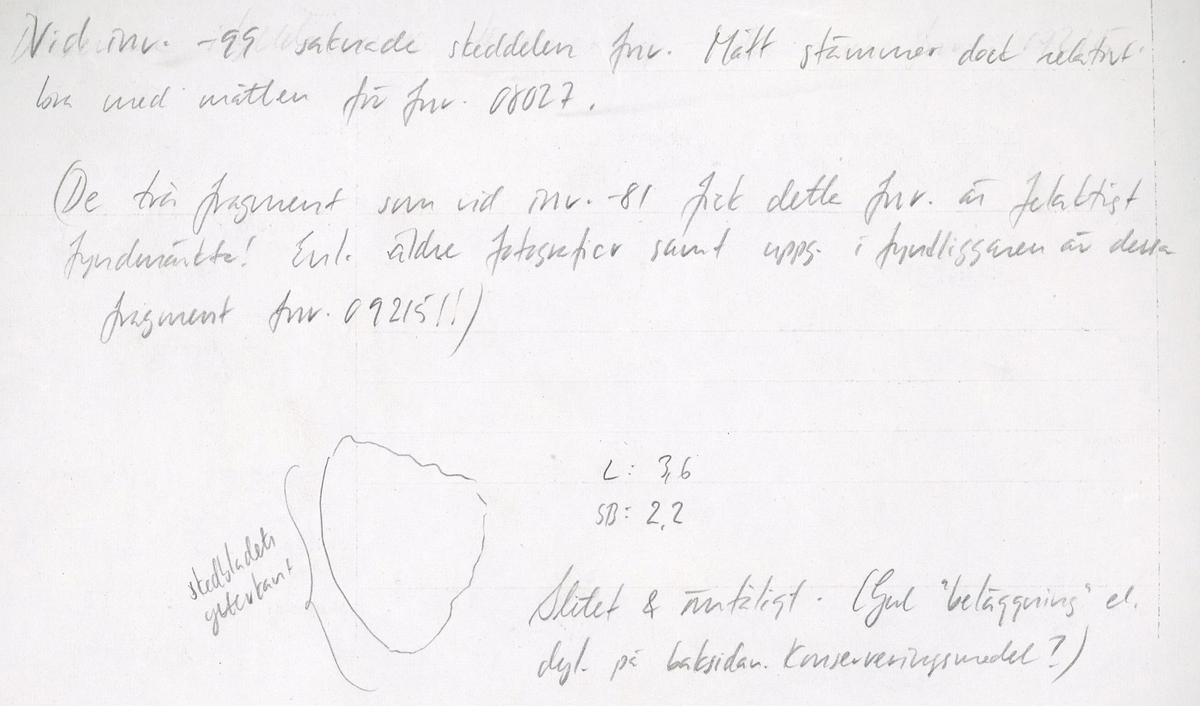 Vid inv. -99 saknade skeddelen fnr. Mått stämmer dock relativt
bra med måtten för fnr. 08027.
(De trä fragment som vid inv. -81 fick detta fnr. är felaktigt
fyndmärkta! Enl. äldre fotografier samt uppg. i fyndliggaren är dessa
fragment fnr. 09215!!)
skedbladets
ytterkant
L: 3,6
SB: 2,2
Slitet & ömtåligt. (Gul "beläggning" el.
dyl. på baksidan. Konserveringsmedel?)